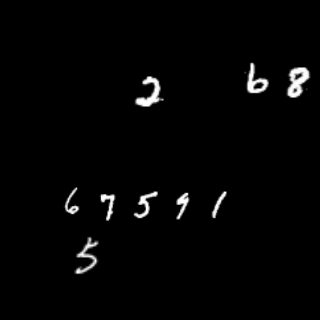 2 6 8
6 7 5 9 1
5